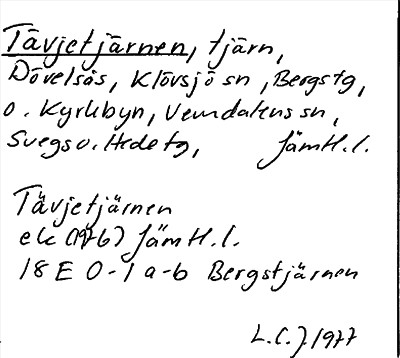 Tävjetjärnen, tjärn,
Dövelsås, Klövsjö sn, Bergs tg,
o. Kyrkbyn, Vemdalens sn,
Svegs o. Hede tg, Jämtl. l.
Tävjetjärnen
ek (1976) Jämtl. l.
18 E 0-1 a-b Bergstjärnen
L.C.J. 1977